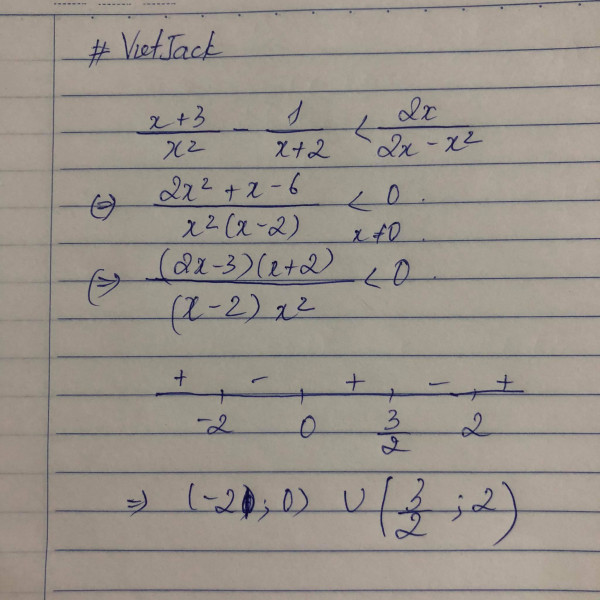 # VietJack
\frac{x+3}{x^2} - \frac{1}{x+2} < \frac{2x}{2x-x^2}
(=) \frac{2x^2+x-6}{x^2(x-2)} < 0 . x ≠ 0 .
(=) \frac{(2x-3)(x+2)}{(x-2) x^2} < 0 .
+ - + - +
-2 0 \frac{3}{2} 2
=> (-2; 0) ∪ (\frac{3}{2}; 2)